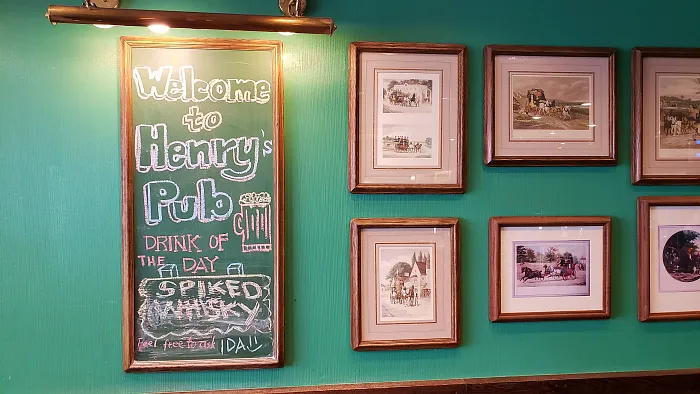 Welcome
to
Henry's
Pub
DRINK OF
THE DAY
SPIKED
WHISKY
Feel free to ask IDA!!